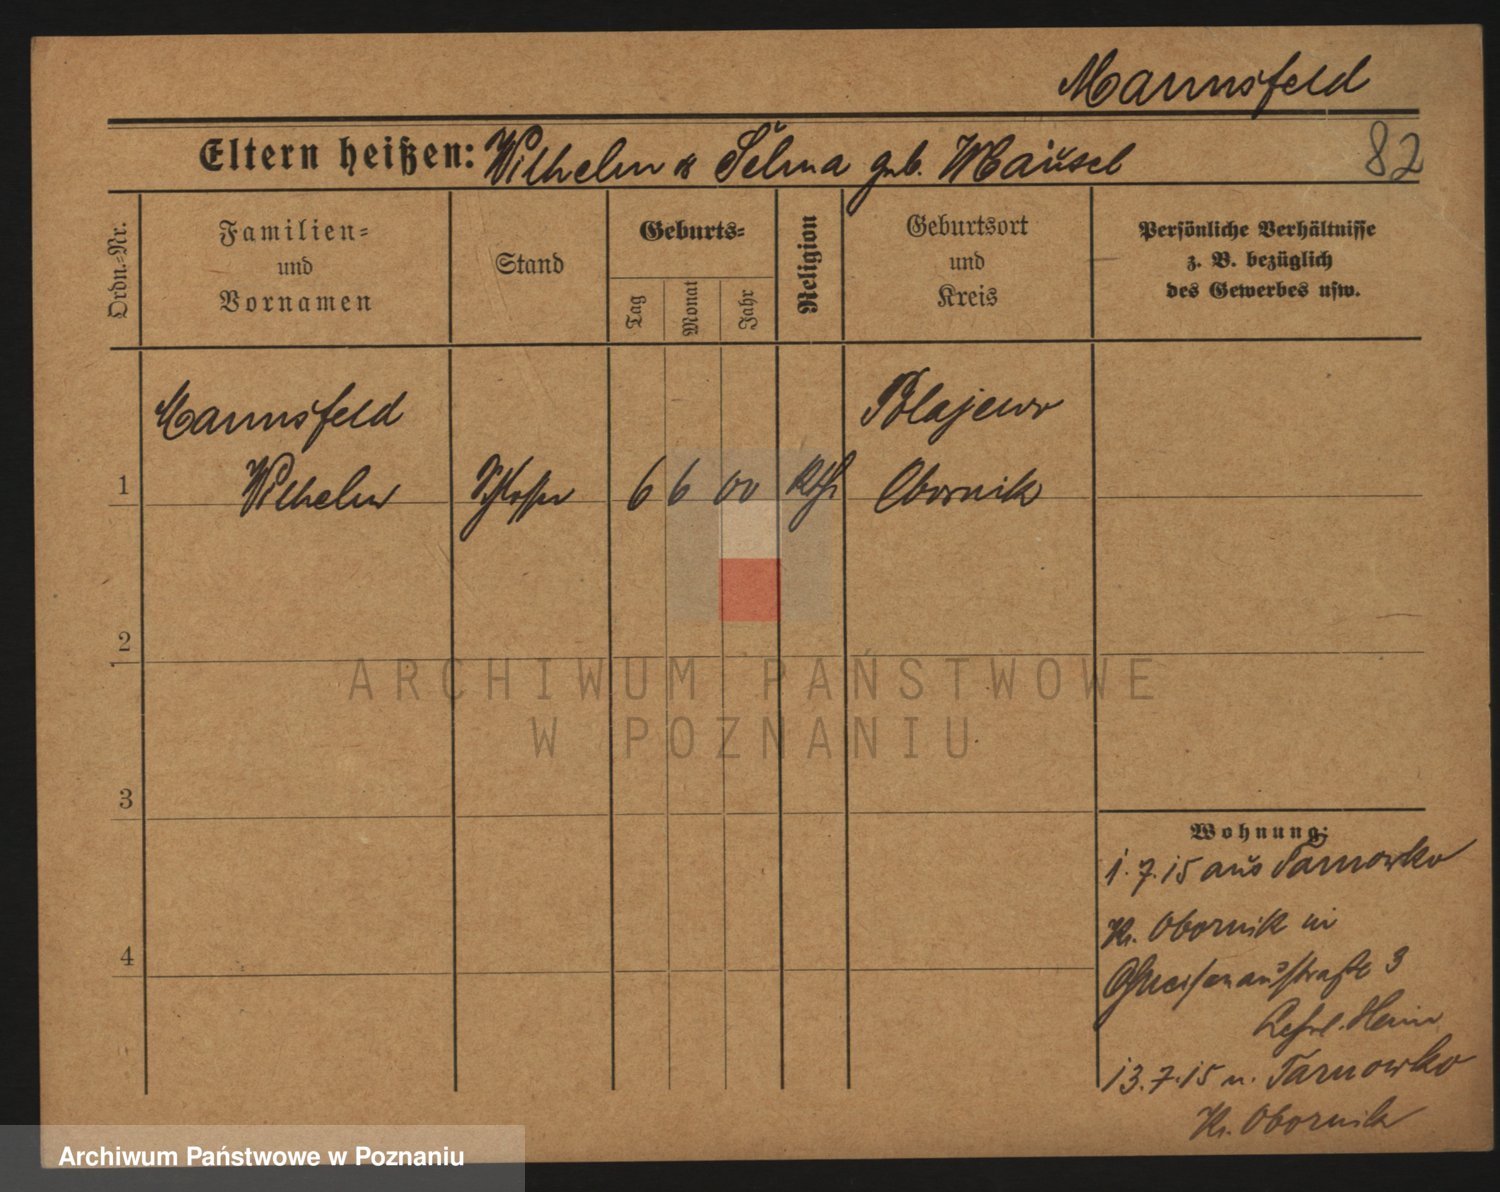 Mannsfeld
82
Eltern heißen: Wilhelm & Selma geb. Mäusel
Ordn.=Nr.
Familien=
und
Vornamen
Stand
Geburts=
Tag
Monat
Jahr
Religion
Geburtsort
und
Kreis
Persönliche Verhältnisse
z. B. bezüglich
des Gewerbes usw.
Mannsfeld
Blajewo
1 Wilhelm Schlosser 6 6 00 Obornik
2
3
4
Wohnung:
1.7.15 aus Tarnowko
Kr. Obornik in
Gneisenaustraße 3
13.7.15 n. Tarnowko
Kr. Obornik
ARCHIWUM PAŃSTWOWE
W POZNANIU
Archiwum Państwowe w Poznaniu